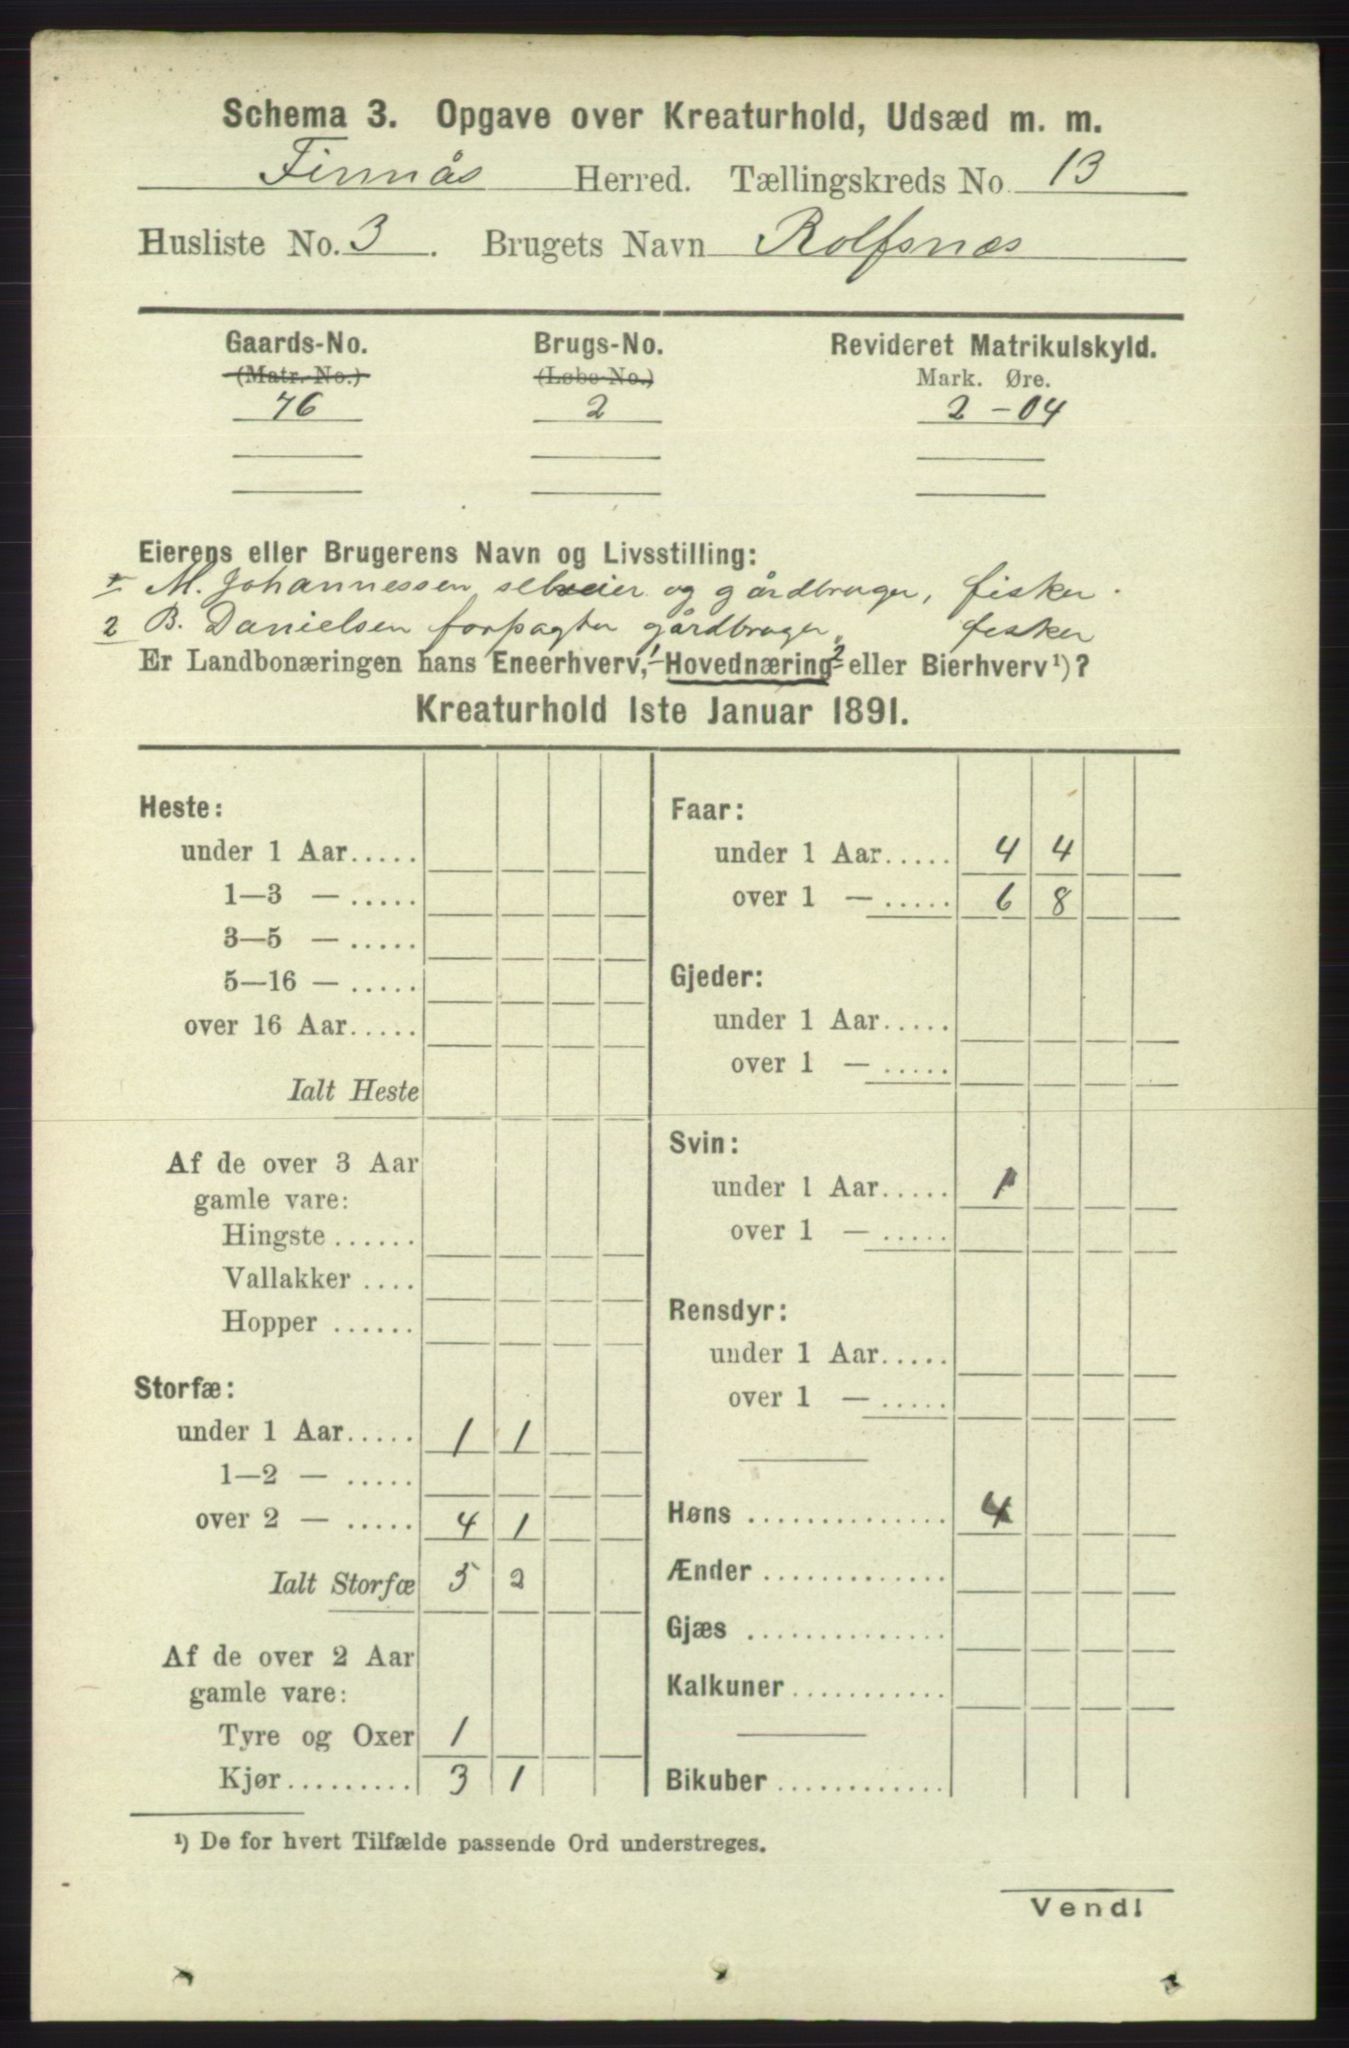 Schema 3. Opgave over Kreaturhold, Udsæd m. m.
Finnås Herred. Tællingskreds No. 13
Husliste No. 3. Brugets Navn Rolfsnæs
Gaards-No. Brugs-No. Revideret Matrikulskyld.
(Matr.-No.) (Løbe-No.) Mark. Øre.
76 2 2 - 04
Eierens eller Brugerens Navn og Livsstilling:
1 M. Johannessen selveier og gårdbruger, fisker.
2 B. Danielsen forpagter gårdbruger, fisker
Er Landbonæringen hans Eneerhverv, 1 Hovednæring 2 eller Bierhverv ¹)?
Kreaturhold 1ste Januar 1891.
Heste:
under 1 Aar.....
1—3 — .....
3—5 — .....
5—16 — .....
over 16 Aar.....
Ialt Heste
Af de over 3 Aar
gamle vare:
Hingste ......
Vallakker ....
Hopper ......
Storfæ:
under 1 Aar..... 1 1
1—2 — .....
over 2 — ..... 4 1
Ialt Storfæ 5 2
Af de over 2 Aar
gamle vare:
Tyre og Oxer 1
Kjør......... 3 1
Faar:
under 1 Aar..... 4 4
over 1 — ..... 6 8
Gjeder:
under 1 Aar.....
over 1 — .....
Svin:
under 1 Aar..... 1
over 1 — .....
Rensdyr:
under 1 Aar.....
over 1 — .....
Høns .............. 4
Ænder .............
Gjæs ..............
Kalkuner...........
Bikuber ............
¹) De for hvert Tilfælde passende Ord understreges.
Vend!